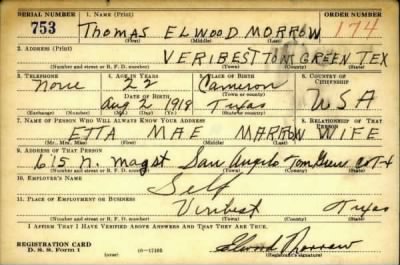 SERIAL NUMBER 1. NAME (Print) ORDER NUMBER
753 THOMAS ELWOOD MORROW 174
(First) (Middle) (Last)
2. ADDRESS (Print)
VERIBEST TOM GREEN TEX
(Number and street or R. F. D. number) (Town) (County) (State)
3. TELEPHONE 4. AGE IN YEARS 5. PLACE OF BIRTH 6. COUNTRY OF CITIZENSHIP
None 22 Cameron
(Town or county)
DATE OF BIRTH
Aug 2 1918 Texas USA
(Exchange) (Number) (Mo.) (Day) (Yr.) (State or country)
7. NAME OF PERSON WHO WILL ALWAYS KNOW YOUR ADDRESS 8. RELATIONSHIP OF THAT PERSON
ETTA MAE MARROW WIFE
(Mr., Mrs., Miss) (First) (Middle) (Last)
9. ADDRESS OF THAT PERSON
615 N. Mag st San Angelo Tom Green
(Number and street or R. F. D. number) (Town) (County) (State)
10. EMPLOYER'S NAME
Self
11. PLACE OF EMPLOYMENT OR BUSINESS
Veribest Texas
(Number and street or R. F. D. number) (Town) (County) (State)
I AFFIRM THAT I HAVE VERIFIED ABOVE ANSWERS AND THAT THEY ARE TRUE.
REGISTRATION CARD
D. S. S. Form 1 Elwood Morrow
(Registrant's signature)